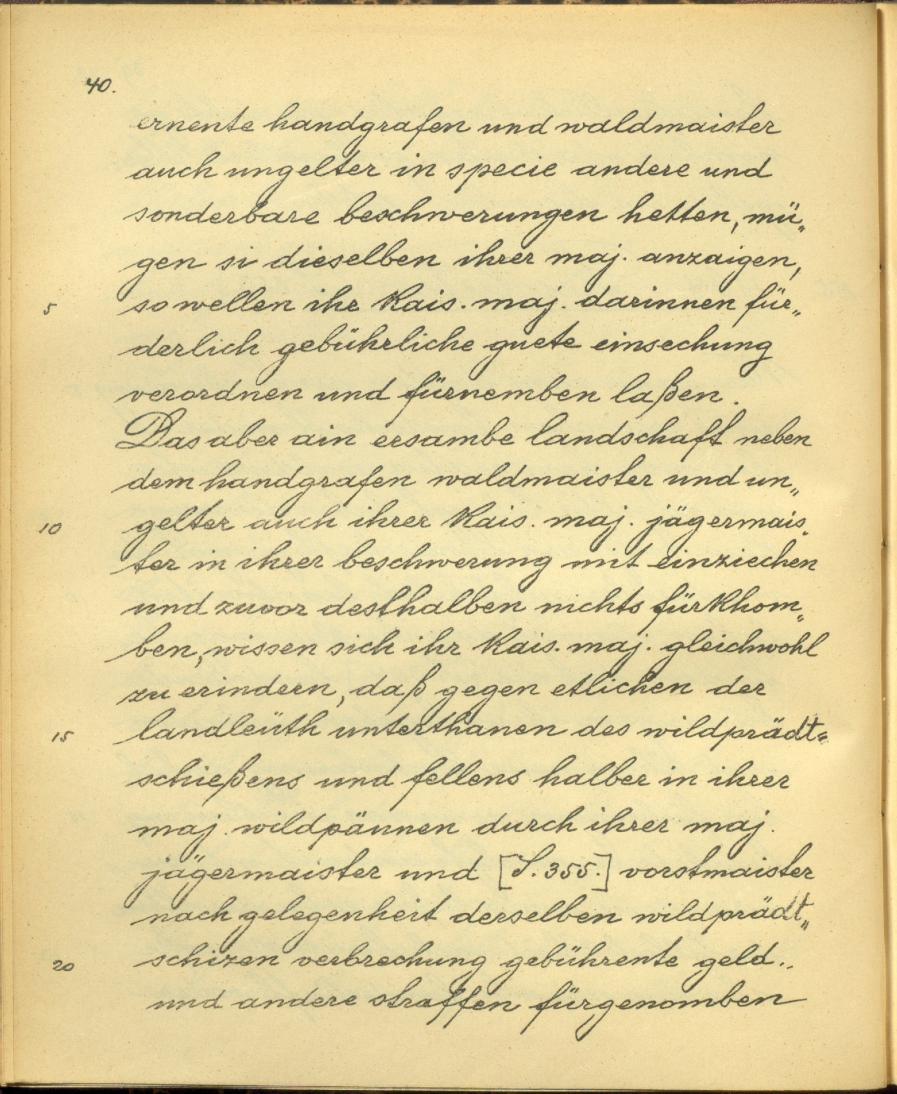 40.
ernente handgrafen und waldmaister
auch ungelter in specie andere und
sonderbare beschwerungen hetten, mü„
gen si dieselben ihrer maj. anzaigen,
5 so wellen ihr Kais. maj. darinnen für„
derlich gebührliche guete einsechung
verordnen und fürnemben laßen.
Das aber ain ersambe landschaft neben
dem handgrafen waldmaister und un„
10 gelter auch ihrer Kais. maj. jägermais„
ter in ihrer beschwerung mit einziechen
und zuvor desthalben nichts fürkhom„
ben, wissen sich ihr Kais. maj. gleichwohl
zu erindern, daß gegen etlichen der
15 landleüth unterthanen des wildprädt„
schießens und fellens halber in ihrer
maj. wildpännen durch ihrer maj.
jägermaister und [S. 355.] vorstmaister
nach gelegenheit derselben wildprädt„
20 schizen verbrechung gebührente geld„
und andere straffen fürgenomben